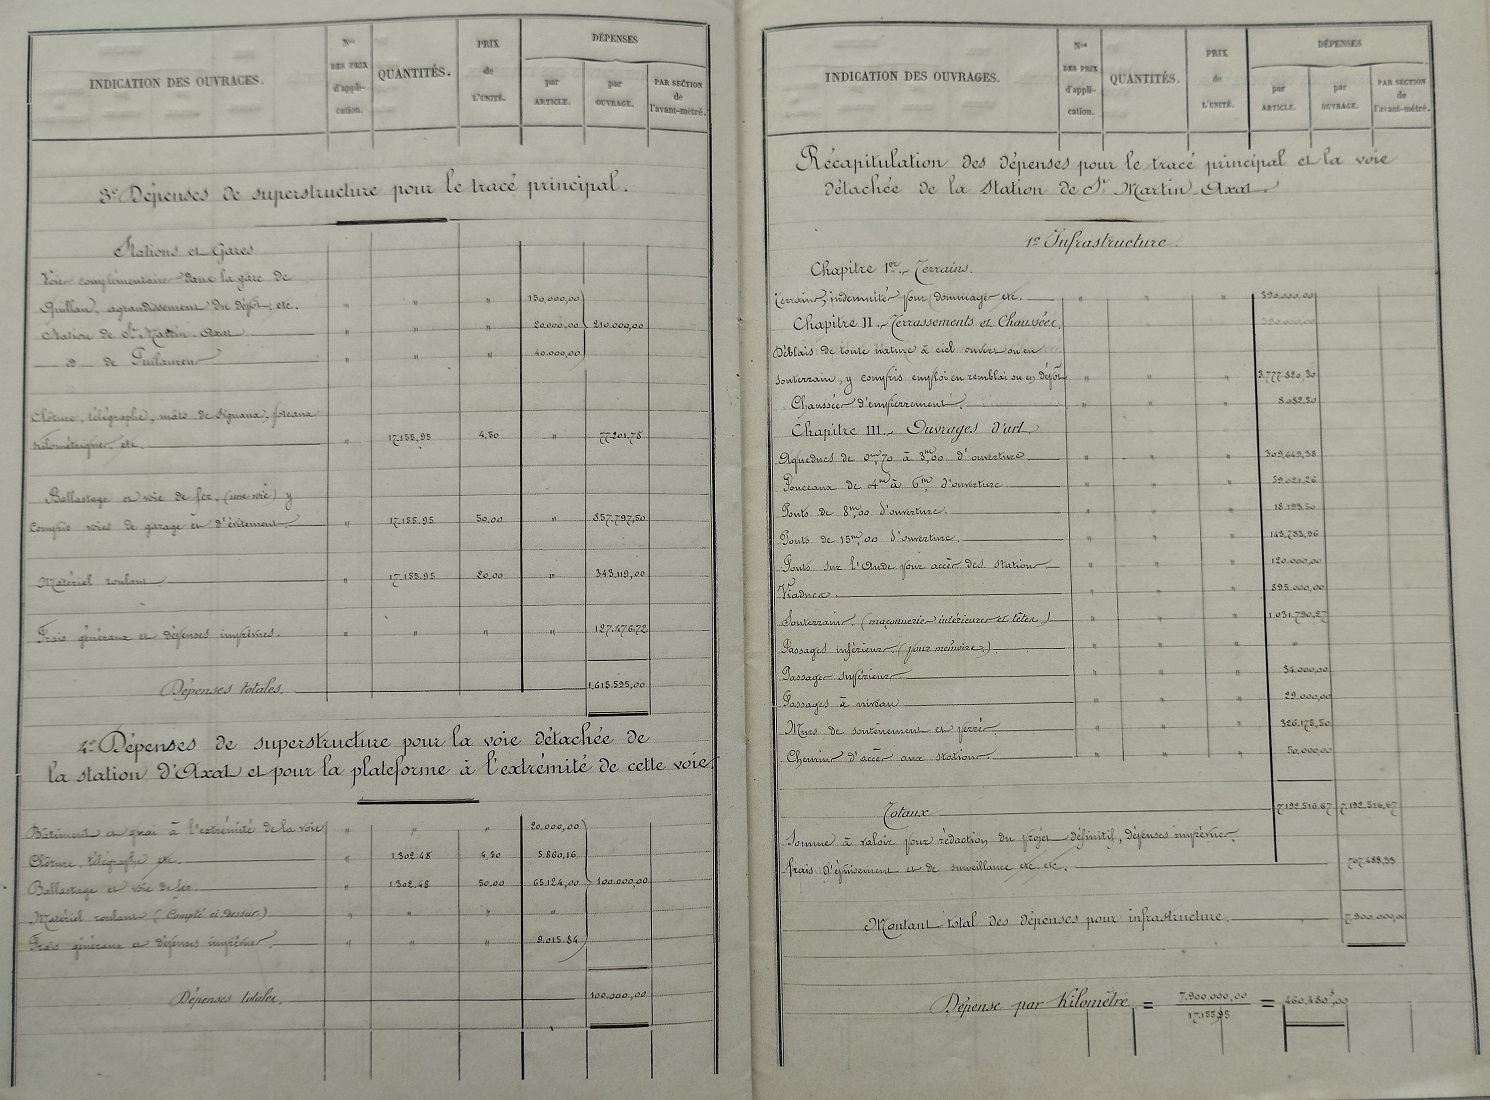 INDICATION DES OUVRAGES.
Nos DES PRIX d'appli-cation.
QUANTITÉS.
PRIX de L'UNITÉ.
DÉPENSES
par ARTICLE.
par OUVRAGE.
PAR SECTION de l'avant-métré.
3° Dépenses de superstructure pour le tracé principal.
Stations et Gares
Voie complémentaire dans la gare de
Quillan, agrandissement du dépôt, etc. " " " 150.000,00
Station de St Martin-Axat " " " 20.000,00 210.000,00
d° de " " " 40.000,00
Clôture, télégraphe, mâts de signaux, poteaux
kilométriques, etc. " 17.155,95 4,50 " 77.201,78
Ballastage et voie de fer, (une voie) y
compris voies de garage et d'évitement. " 17.155,95 50,00 " 857.797,50
Matériel roulant " 17.155,95 20,00 " 343.119,00
Frais généraux et dépenses imprévues. " " " " 127.476,72
Dépenses totales 1.615.595,00
4° Dépenses de superstructure pour la voie détachée de
la station d'Axat et pour la plateforme à l'extrémité de cette voie.
Bâtiment et quai à l'extrémité de la voie " " " 20.000,00
Clôture, télégraphe etc. " 1.302,48 4,50 5.860,16
Ballastage et voie de fer " 1.302,48 50,00 65.124,00 100.000,00
Matériel roulant (Compté ci-dessus) " " " "
Frais généraux et dépenses imprévues. " " " 9.015,84
Dépenses totales. 100.000,00
INDICATION DES OUVRAGES.
Nos DES PRIX d'appli-cation.
QUANTITÉS.
PRIX de L'UNITÉ.
DÉPENSES
par ARTICLE.
par OUVRAGE.
PAR SECTION de l'avant-métré.
Récapitulation des dépenses pour le tracé principal et la voie
détachée de la station de St Martin-Axat.
1° Infrastructure.
Chapitre 1er. Terrains.
Terrains, indemnités pour dommages etc. " " " 390.000,00
Chapitre II. Terrassements et Chaussées.
Déblais de toute nature à ciel ouvert ou en
souterrain, y compris emploi en remblai ou en dépôt " " " 3.777.820,30
Chaussée d'empierrement. " " " 8.082,50
Chapitre III. Ouvrages d'art.
Aqueducs de 0m,70 à 3m,00 d'ouverture " " " 309.649,38
Ponceaux de 4m à 6m d'ouverture " " " 59.021,26
Ponts de 8m,00 d'ouverture. " " " 18.193,50
Ponts de 15m,00 d'ouverture. " " " 143.733,96
Ponts sur l'Aude pour accès des stations " " " 120.000,00
Viaducs. " " " 895.000,00
Souterrains, (maçonneries intérieures et têtes) " " " 1.031.790,27
Passages inférieurs (pour mémoire.) " " " "
Passages supérieurs " " " 34.000,00
Passages à niveau " " " 29.000,00
Murs de soutènement et perrés. " " " 326.175,50
Chemins d'accès aux stations. " " " 50.000,00
Totaux 7.192.516,67 7.192.516,67
Somme à valoir pour rédaction du projet définitif, dépenses imprévues
frais d'épuisement et de surveillance etc. etc. 707.483,33
Montant total des dépenses pour infrastructure. 7.900.000,00
Dépense par Kilomètre = 7.900.000,00 / 17.155,95 = 460.480f,00